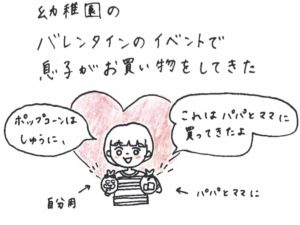 幼稚園の
バレンタインのイベントで
息子がお買い物をしてきた
ポップコーンは
しゅうに、
これはパパとママに
買ってきたよ
自分用
パパとママに